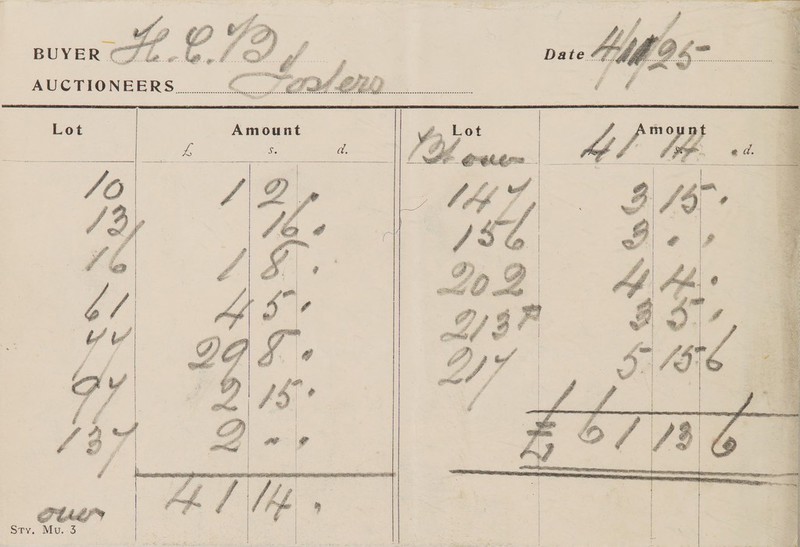 BUYER H.C.B. Date 4/11/25
AUCTIONEERS Fosters
Lot Amount
£ s. d.
10 1 2 .
13 16 .
16 1 8 .
61 4 5 .
77 29 8 .
97 2 15 .
137 2 . .
over 41 14 .
STY. MU. 3
Lot Amount
Bt over 41 14 . s. d.
147 3 15 .
156 3 . .
202 4 4 .
213A 3 5 .
217 5 15 6
£ 61 13 6